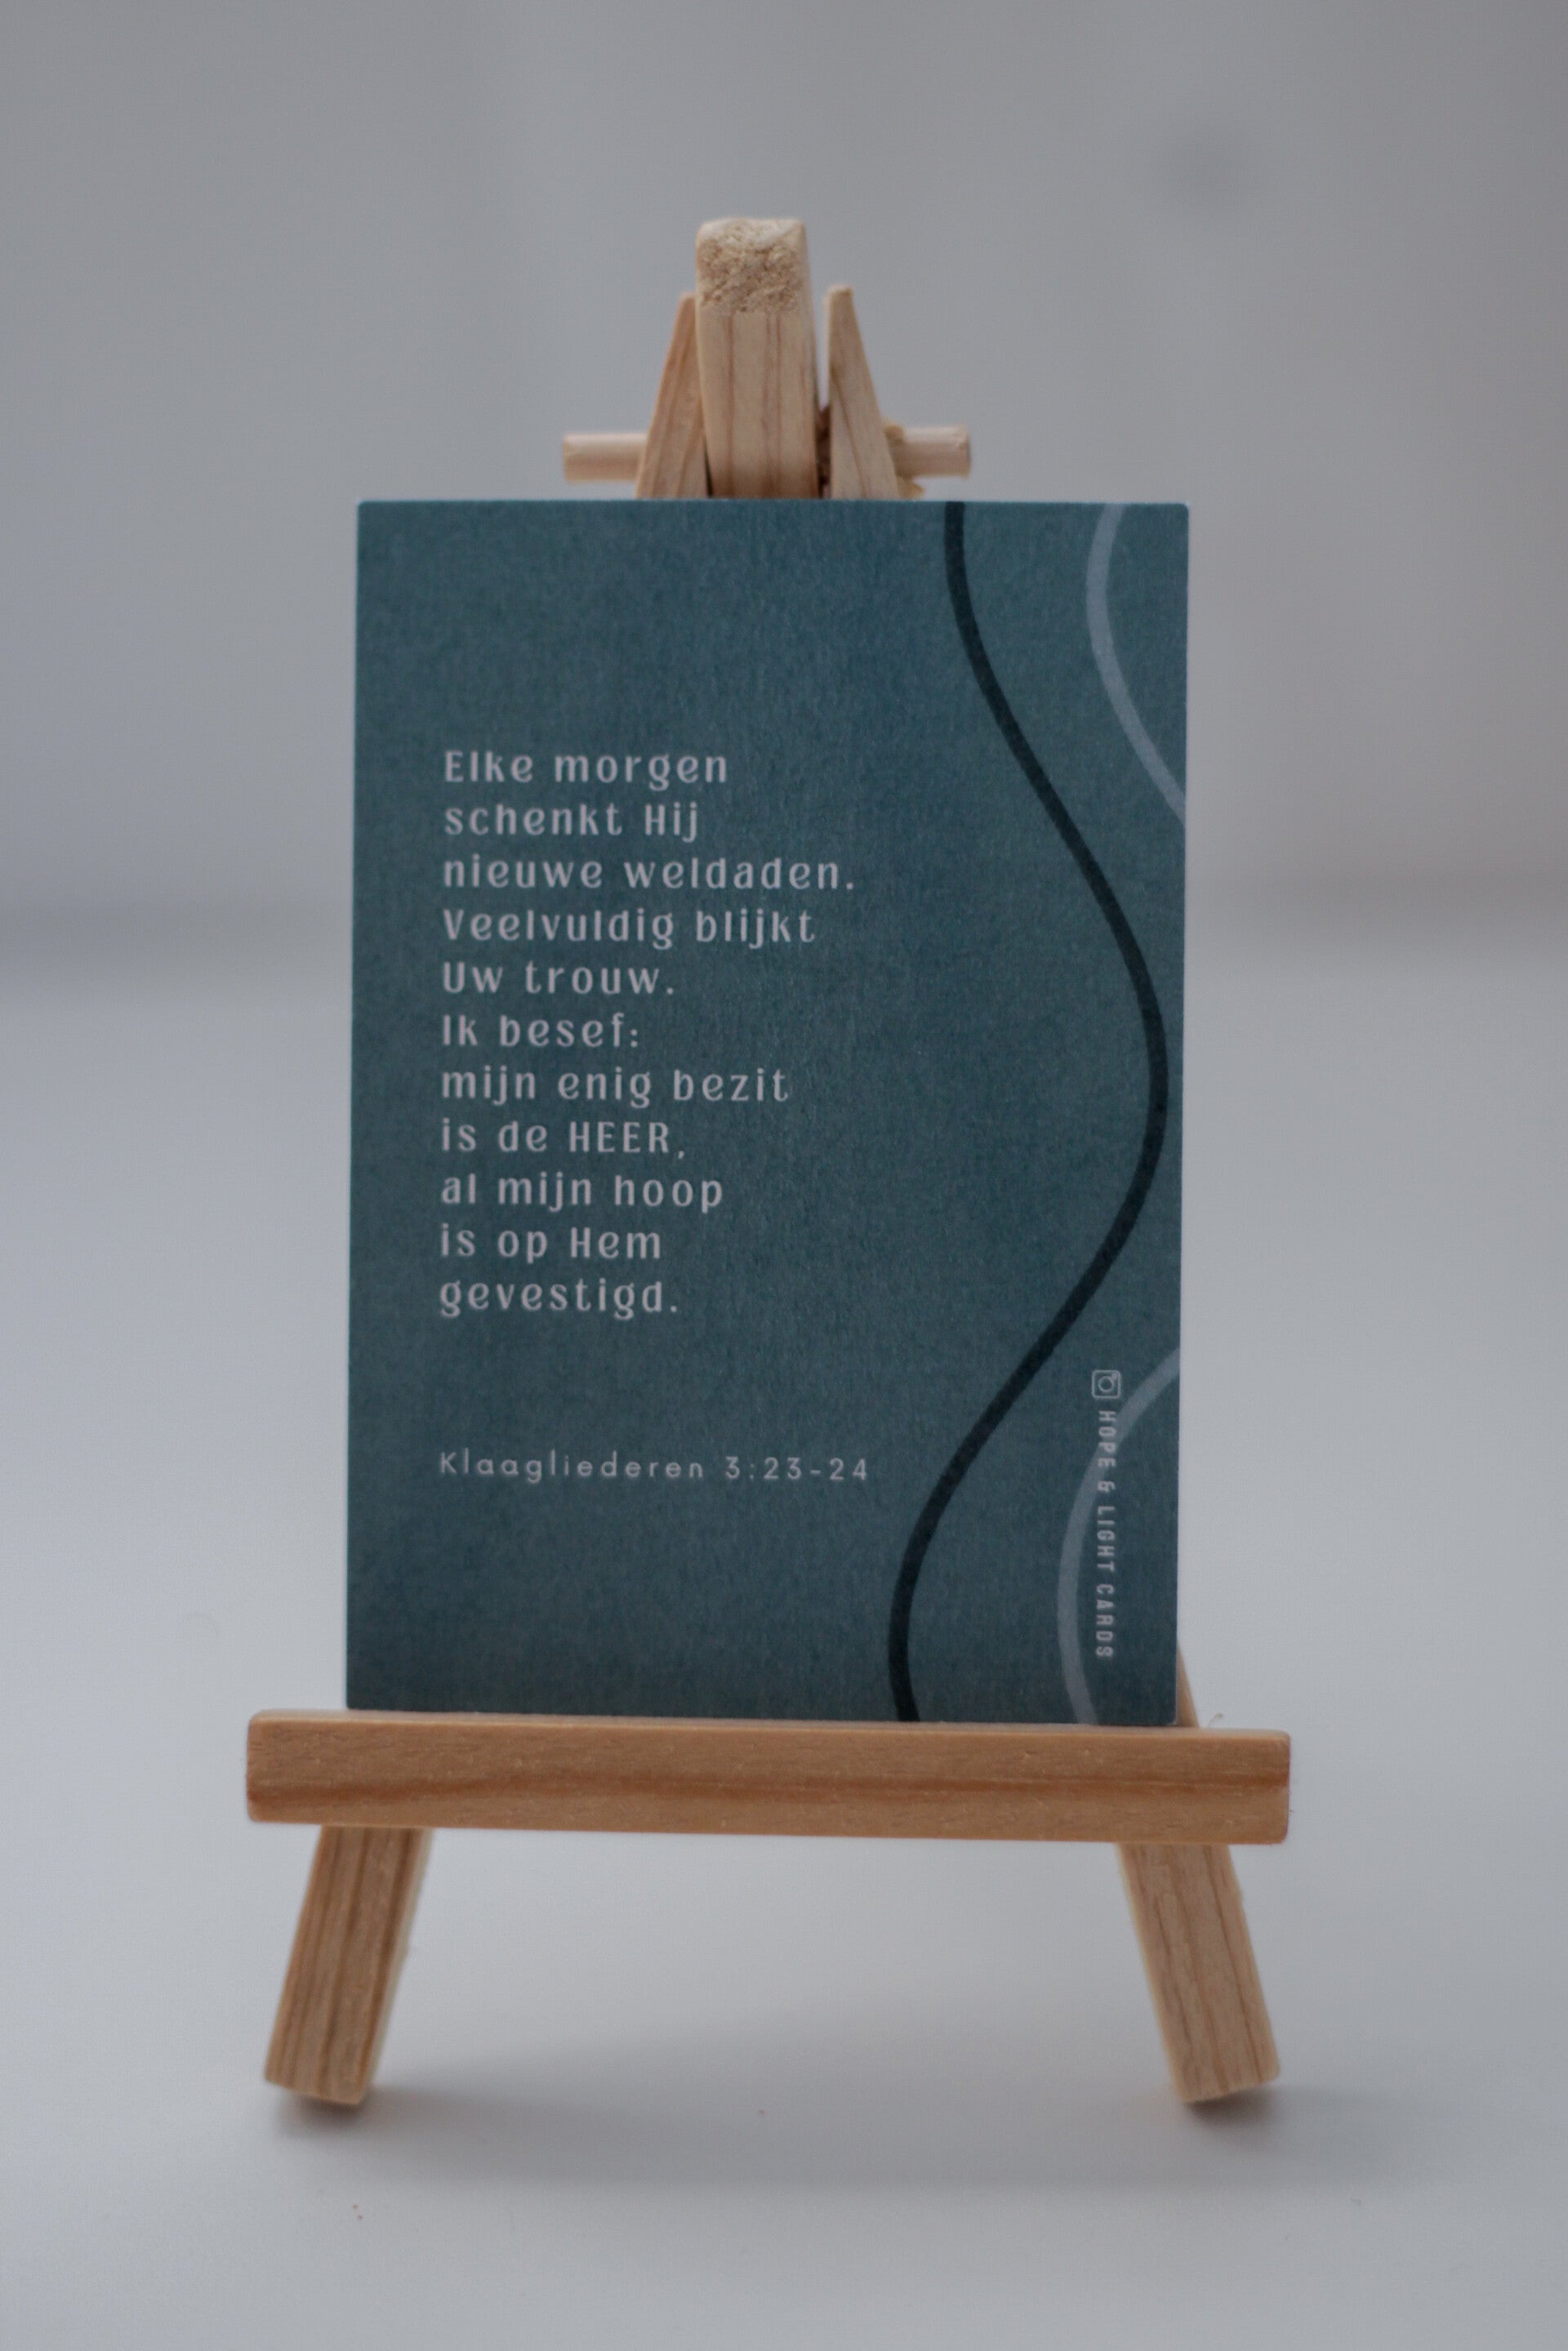 Elke morgen
schenkt Hij
nieuwe weldaden.
Veelvuldig blijkt
Uw trouw.
Ik besef:
mijn enig bezit
is de HEER,
al mijn hoop
is op Hem
gevestigd.
Klaagliederen 3:23-24
HOPE & LIGHT CARDS